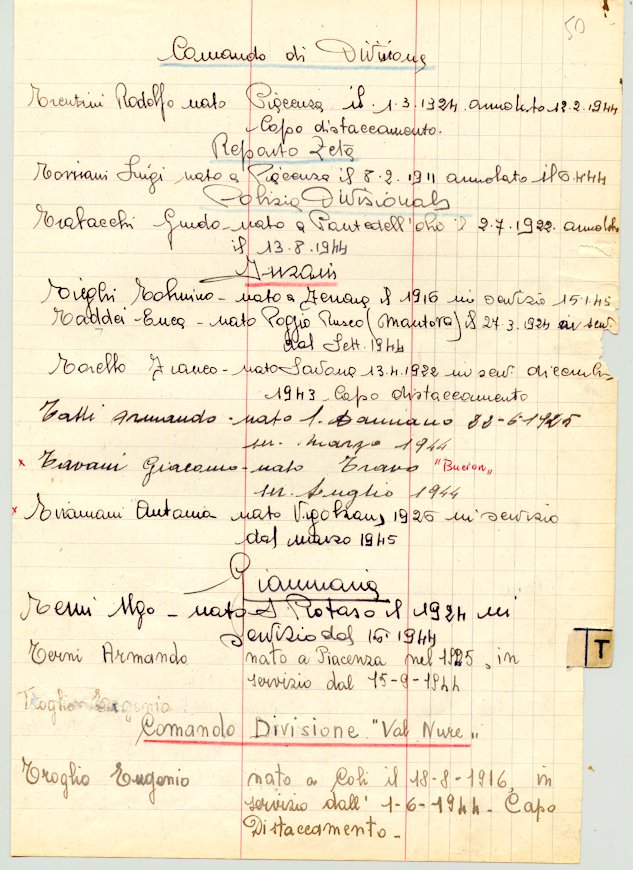 50
Comando di Divisione
Trentini Rodolfo nato Piacenza il 1.3.1924 annolato 12.2.1944
Capo distaccamento.
Reparto Zeta
Torriani Luigi nato a Piacenza il 8.2.1911 annolato il
Polizia Divisionale
Trabacchi Guido nato a Pontedell'olio il 2.7.1922.
il 13.8.1944
Inzani
nato a il 1916 in servizio 15.1.45
Taddei nato Poggio Rusco (Mantova) il 27.3.1924 in serv.
dal Sett. 1944
Torello Franco - nato Savona 13.4.1922 in serv. dicembre
1943 Capo distaccamento
Armando - nato S. Damiano -6-1925
in. marzo 1944
x Tavani Giacomo - nato Travo
in. Luglio 1944
x nato Vigolzon, 1926 in servizio
dal marzo 1945
Gianmaria
Terni Ugo - nato S. il 1924 in
servizio dal 1944
Terni Armando nato a Piacenza nel 1925, in
servizio dal 15-9-1944
T
Troglio Eugenio
Comando Divisione "Val Nure"
Troglio Eugenio nato a Coli il 18-8-1916, in
servizio dall' 1-6-1944. Capo
Distaccamento -